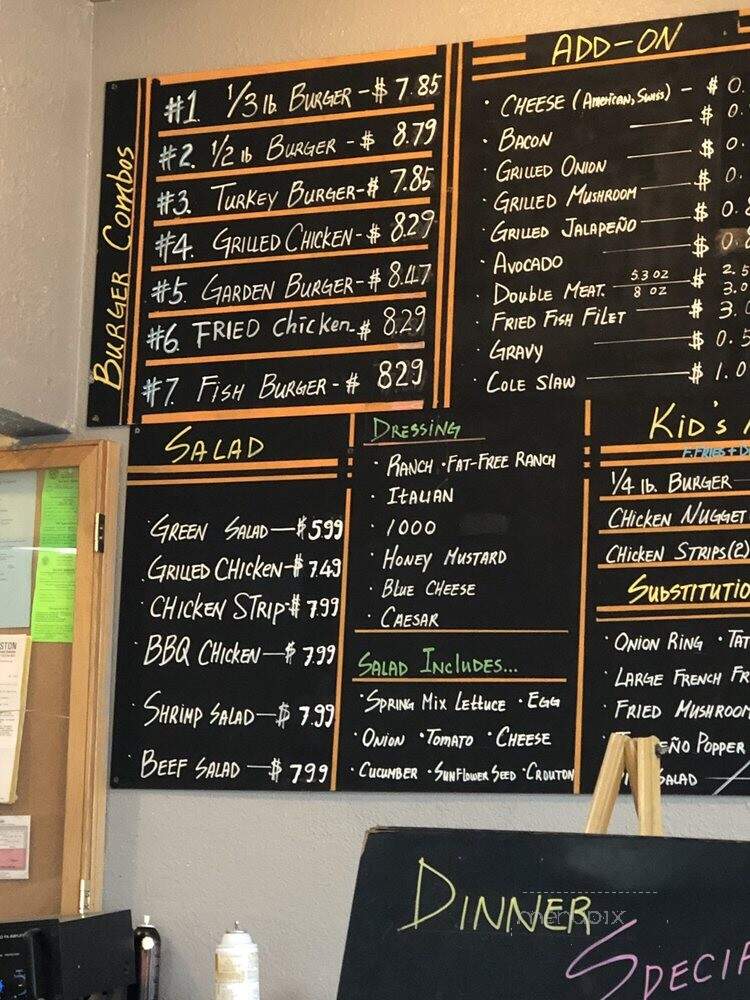 BURGER Combos
#1. 1/3 lb BURGER - $ 7.85
#2. 1/2 lb BURGER - $ 8.79
#3. TURKEY BURGER - $ 7.85
#4. GRILLED CHICKEN - $ 8.29
#5. GARDEN BURGER - $ 8.47
#6. FRIED Chicken - $ 8.29
#7. FISH BURGER - $ 829
ADD-ON
· CHEESE (American, Swiss) - $ 0.
· BACON $ 0.
· GRILLED ONION $ 0.
· GRILLED MUSHROOM $ 0.
· GRILLED JALAPEÑO $ 0.8
· AVOCADO $ 0.8
· DOUBLE MEAT. 5.3 OZ $ 2.5
8 OZ 3.0
· FRIED FISH FILET $ 3.
· GRAVY $ 0.5
· COLE SLAW $ 1.0
SALAD
· GREEN SALAD — $ 5.99
· GRILLED CHICKEN - $ 7.49
· CHICKEN STRIP - $ 7.99
· BBQ CHICKEN — $ 7.99
· SHRIMP SALAD — $ 7.99
· BEEF SALAD — $ 799
DRESSING
· RANCH · FAT-FREE RANCH
· ITALIAN
· 1000
· HONEY MUSTARD
· BLUE CHEESE
· CAESAR
SALAD INCLUDES...
· SPRING MIX LETTUCE · EGG
· ONION · TOMATO · CHEESE
· CUCUMBER · SUNFLOWER SEED · CROUTON
KID'S
F.FRIES +
1/4 lb. BURGER
CHICKEN NUGGET
CHICKEN STRIPS (2)
SUBSTITUTIO
· ONION RING · TAT
· LARGE FRENCH FR
· FRIED MUSHROOM
EÑO POPPER
SALAD
DINNER
SPECIA
menupix